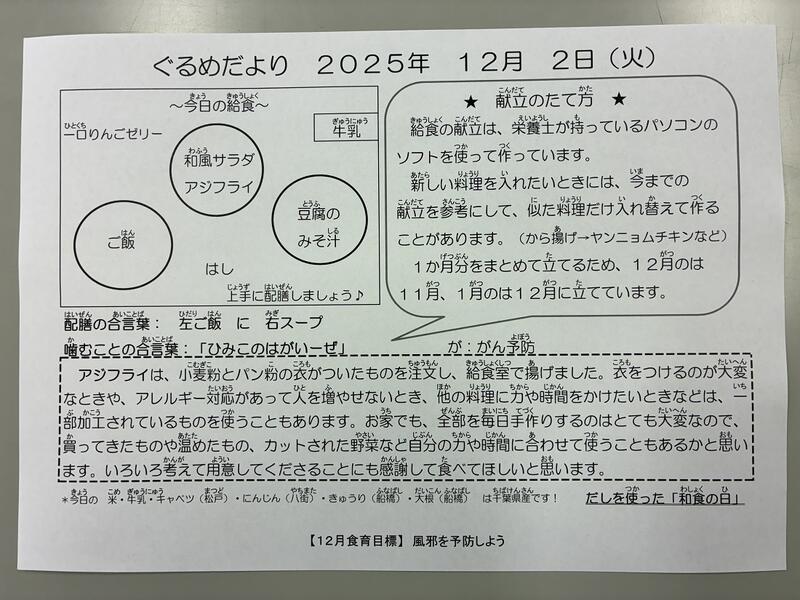 ぐるめだより　２０２５年　１２月　２日（火）
～今日の給食～
一口りんごゼリー
牛乳
和風サラダ
アジフライ
ご飯
豆腐の
みそ汁
はし
上手に配膳しましょう♪
★　献立のたて方　★
給食の献立は、栄養士が持っているパソコンの
ソフトを使って作っています。
新しい料理を入れたいときには、今までの
献立を参考にして、似た料理だけ入れ替えて作る
ことがあります。（から揚げ→ヤンニョムチキンなど）
１か月分をまとめて立てるため、１２月のは
１１月、１月のは１２月に立てています。
配膳の合言葉：　左ご飯　に　右スープ
噛むことの合言葉：「ひみこのはがいーぜ」　が：がん予防
アジフライは、小麦粉とパン粉の衣がついたものを注文し、給食室で揚げました。衣をつけるのが大変
なときや、アレルギー対応があって人を増やせないとき、他の料理に力や時間をかけたいときなどは、一
部加工されているものを使うこともあります。お家でも、全部を毎日手作りするのはとても大変なので、
買ってきたものや温めたもの、カットされた野菜など自分の力や時間に合わせて使うこともあるかと思い
ます。いろいろ考えて用意してくださることにも感謝して食べてほしいと思います。
＊今日の　米・牛乳・キャベツ（松戸）・にんじん（八街）・きゅうり（船橋）・大根（船橋）　は千葉県産です！　だしを使った「和食の日」
【１２月食育目標】 風邪を予防しよう